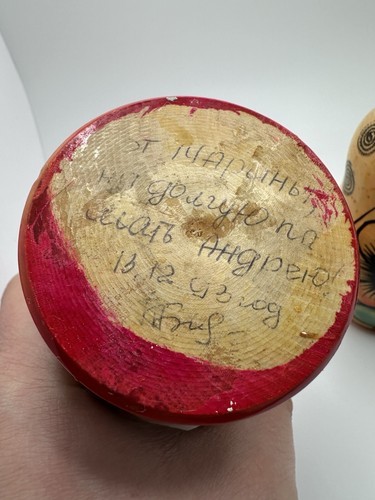 от Марины
на долгую па
мать Андрею!
13 12 93 год